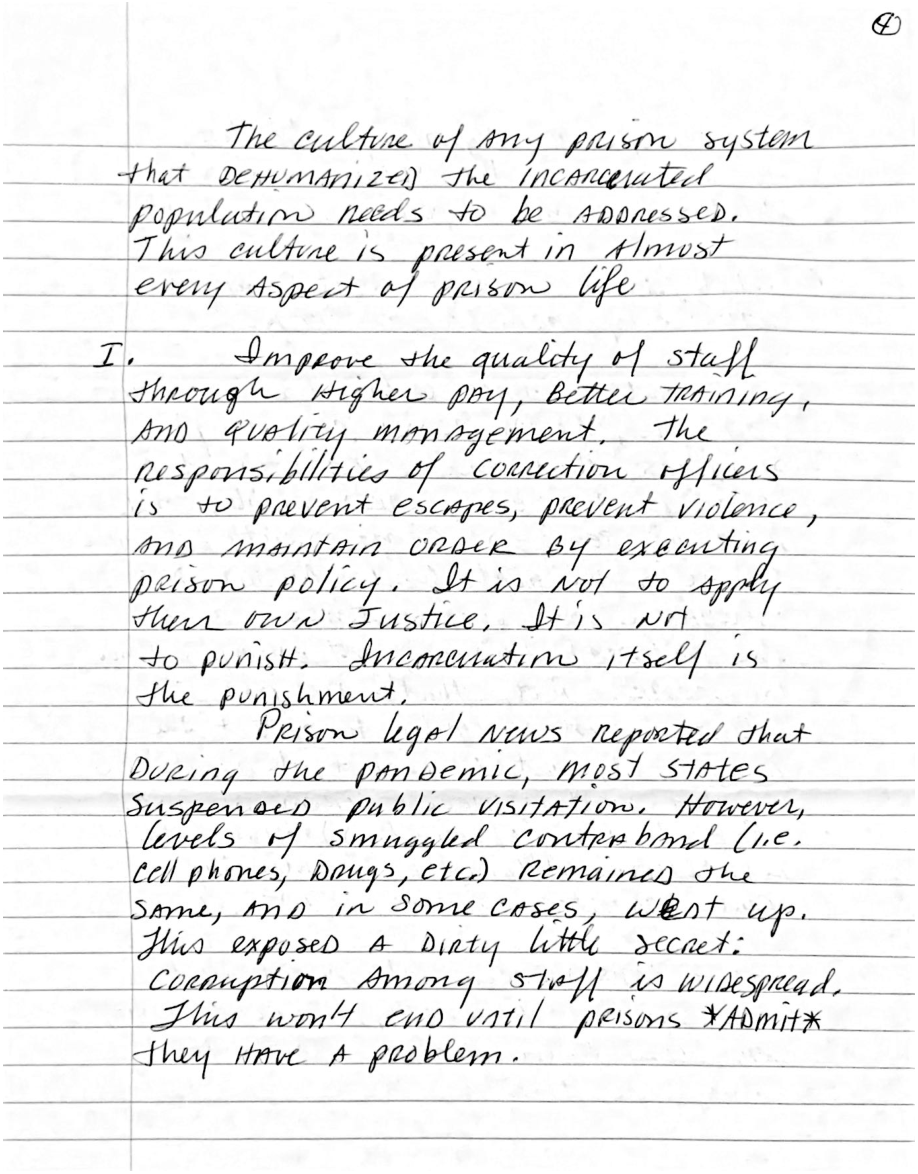 4
The culture of any prison system
that DEHUMANIZED the incarcerated
population needs to be ADDRESSED.
This culture is present in Almost
every Aspect of prison life
I. Improve the quality of staff
through Higher pay, Better TRAINING,
AND quality management. The
responsibilities of correction officers
is to prevent escapes, prevent violence,
AND MAINTAIN ORDER By executing
prison policy. It is Not to Apply
their own Justice. It is Not
to punish. Incarceration itself is
the punishment.
Prison legal News reported that
During the PANDemic, most STATES
suspended public visitation. However,
levels of smuggled contraband (i.e.
cell phones, Drugs, etc.) Remained the
same, AND in some cases, went up.
This exposed A Dirty little secret:
Corruption Among staff is widespread.
This won't end until prisons *ADMIT*
they HAVE A problem.